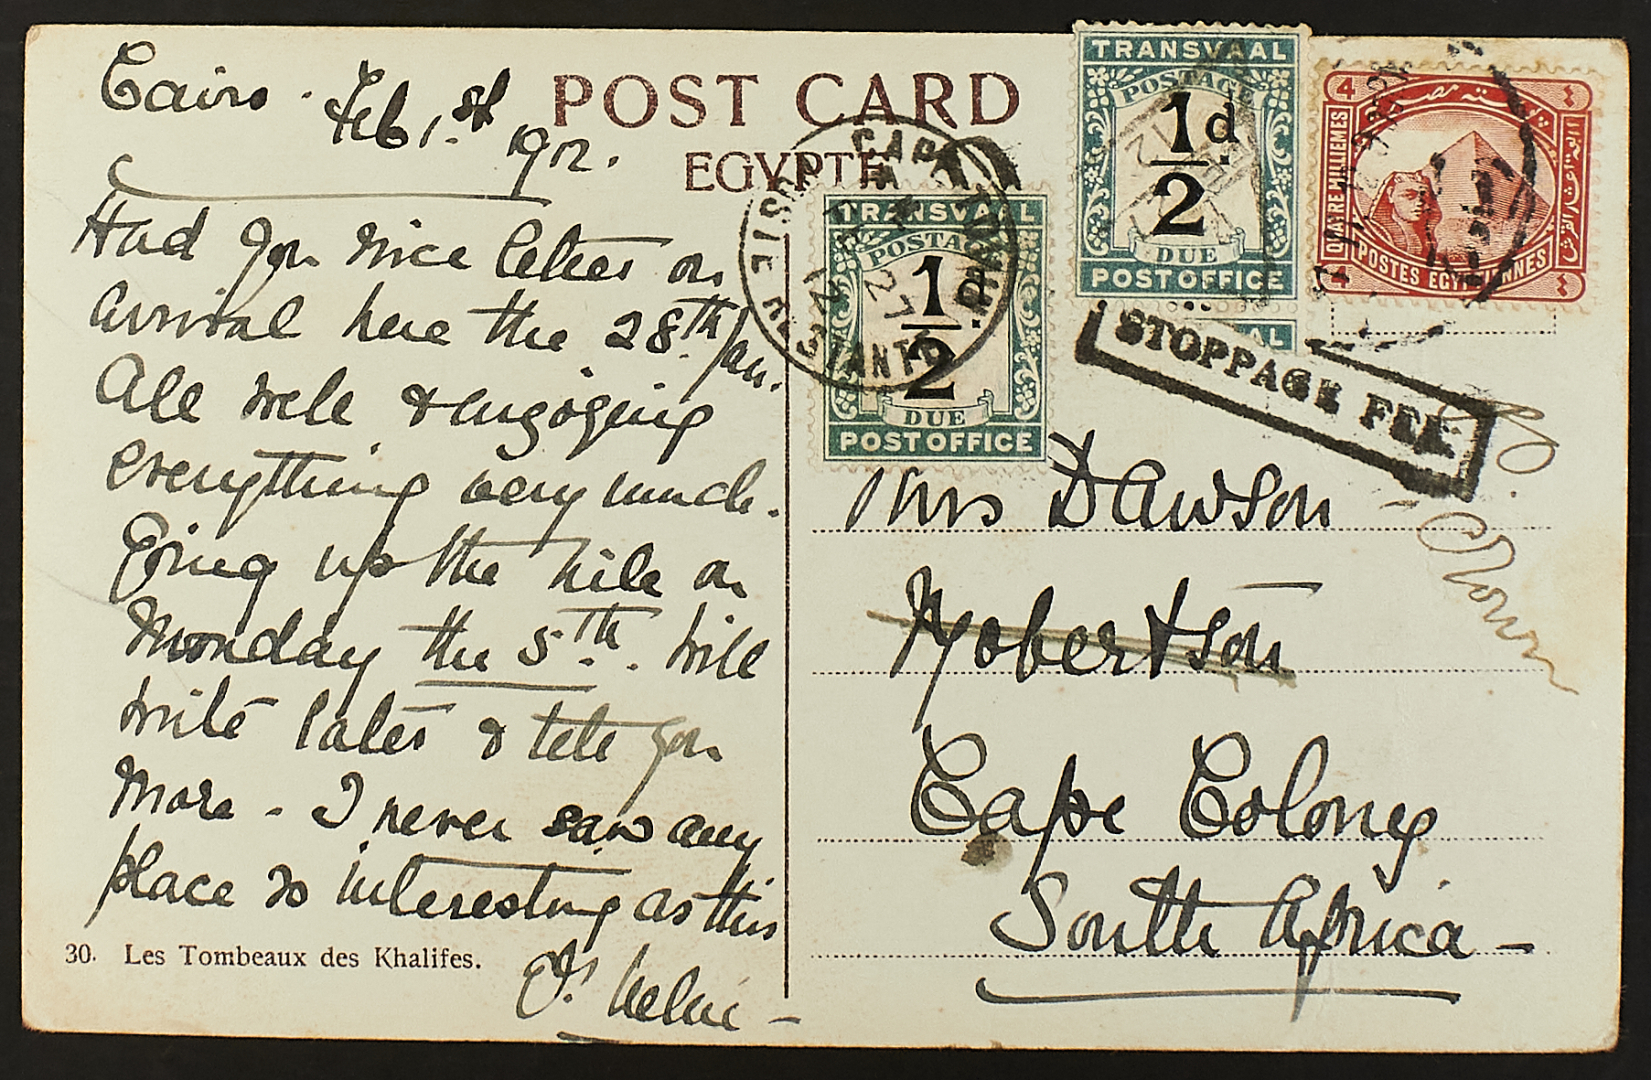 Cairo. Feb 1.st 1912.
POST CARD
EGYPTE
Had you nice letter on
arrival here the 28.th Jan.
All well & enjoying
everything very much.
Going up the Nile on
Monday the 5.th. Will
write later & tell you
more - I never saw any
place so interesting as this
30. Les Tombeaux des Khalifes.
TRANSVAAL
POSTAGE
1/2 d.
DUE
POST OFFICE
TRANSVAAL
POSTAGE
1/2 d.
DUE
POST OFFICE
4
QUATRE MILLIEMES
POSTES EGYPTIENNES
4
CAPE TOWN
27
12
STOPPAGE FEE
Mrs Dawson
Robertson
Cape Colony
South Africa -